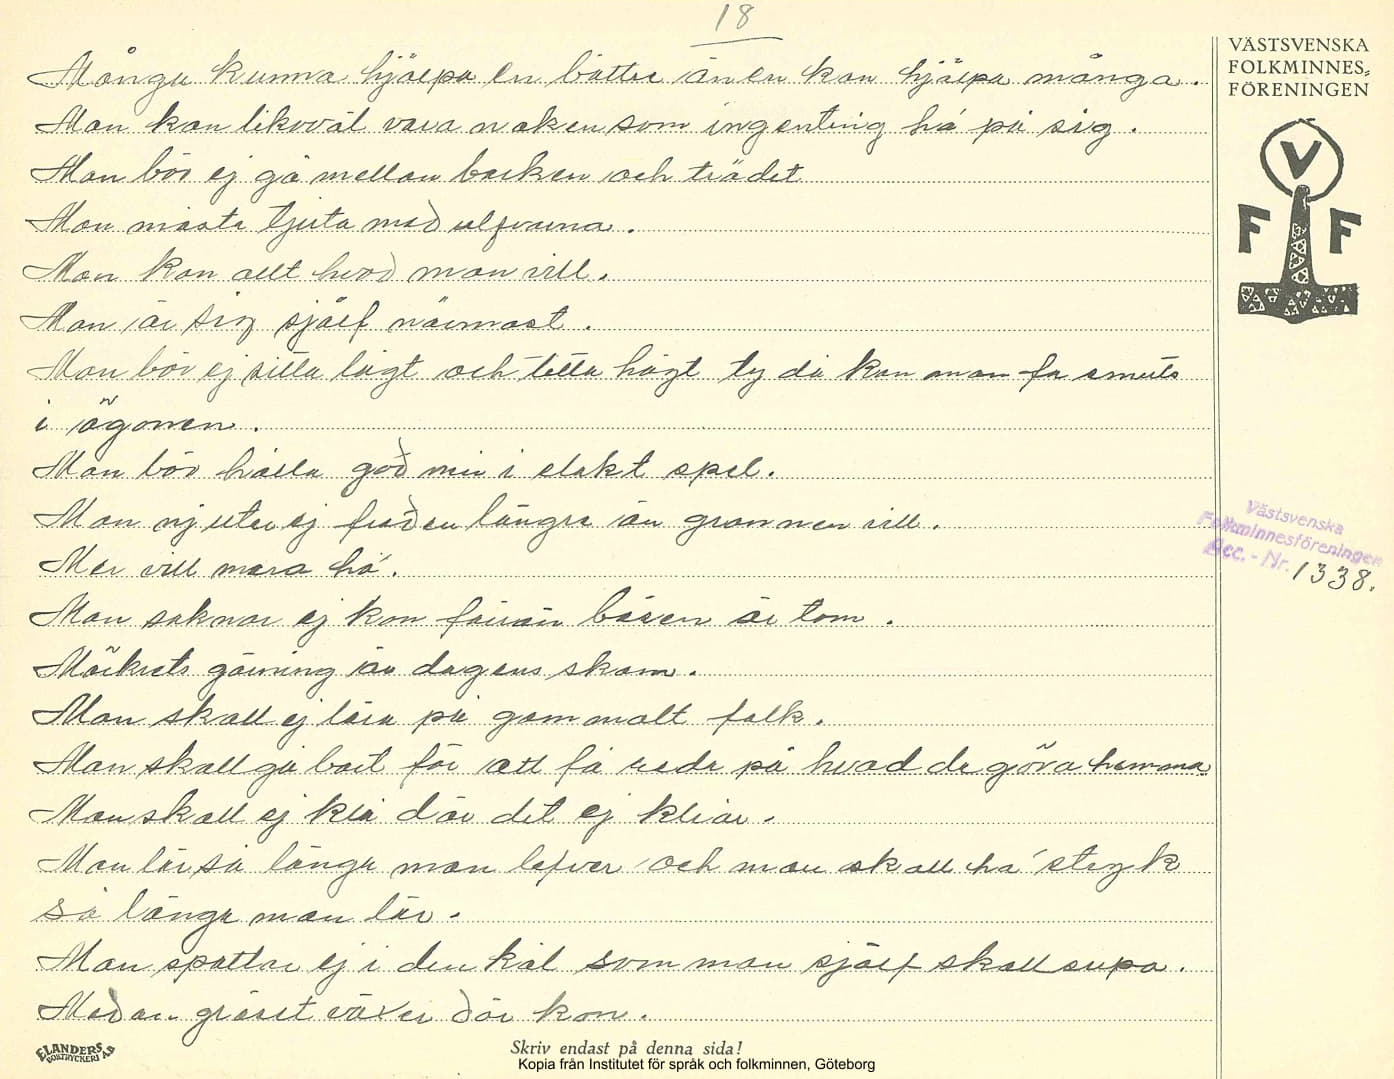 18
Många kunna hjälpa en bättre än en kan hjälpa många.
Man kan likaväl vara naken som ingenting há på sig.
Man bör ej gå mellan barken och trädet
Man måste tjuta med ulfvarna.
Man kan allt hvad man vill.
Man är sig sjelf närmast.
Man bör ej sitta lågt och titta högt ty då kan man få smuts
i ögonen.
Man bör hålla god min i elakt spel.
Man njuter ej freden längre än grannen vill.
Mer vill mera há.
Man saknar ej kon förrän båsen är tom.
Mörkrets gärning är dagens skam.
Man skall ej lära på gammalt folk.
Man skall gå bort för att få reda på hvad de göra hemma
Man skall ej klå där det ej kliar.
Man lär så länge man lefver och man skall há stryk
så länge man lär.
Man spottar ej i den kål som man sjelf skall supa.
Medan gräset växer dör kon.
VÄSTSVENSKA
FOLKMINNES-
FÖRENINGEN
V
F F
Västsvenska
Folkminnesföreningen
Acc.-Nr. 1338.
ELANDERS
BOKTRYCKERI A.B
Skriv endast på denna sida!
Kopia från Institutet för språk och folkminnen, Göteborg